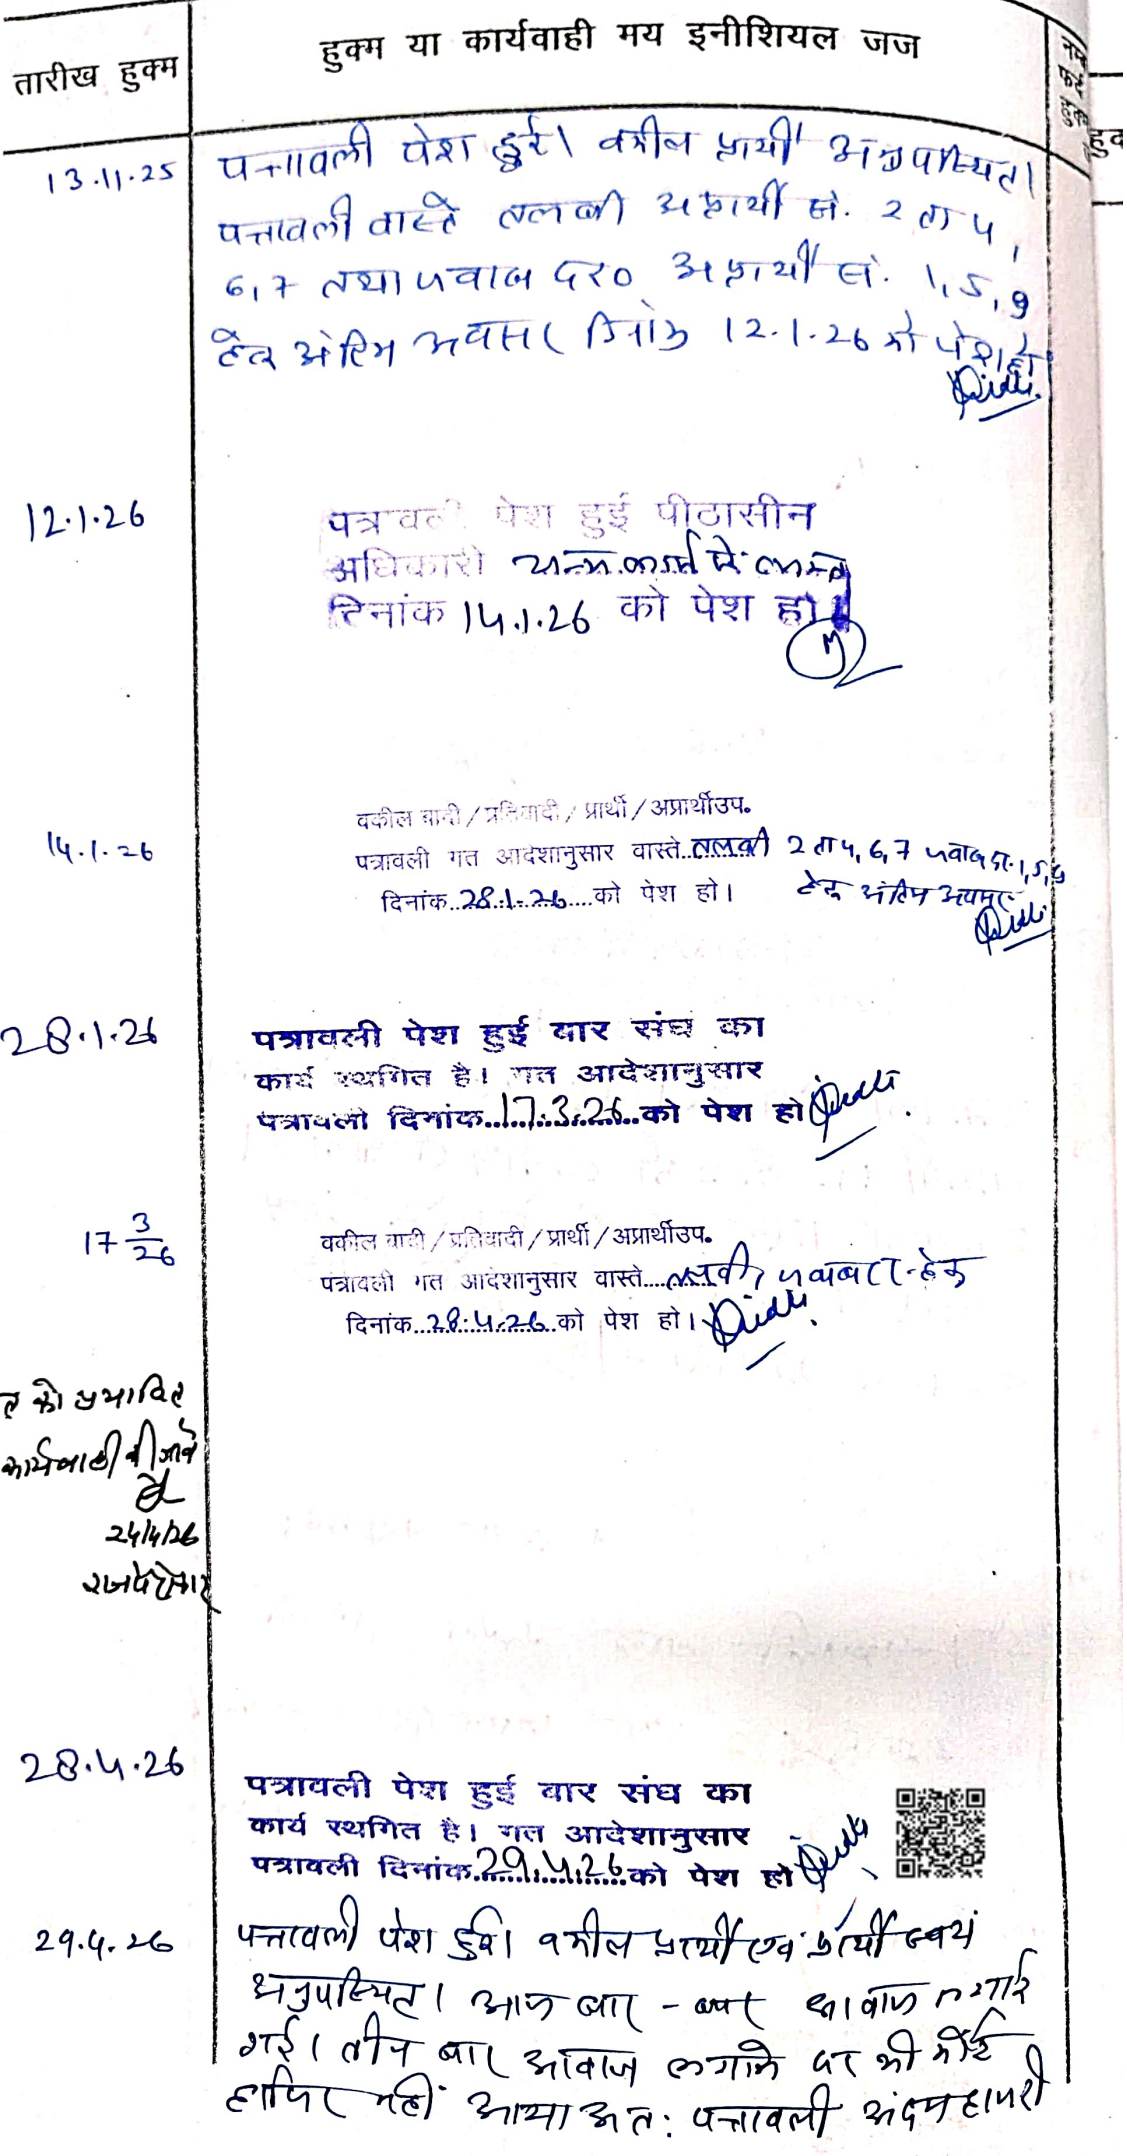 तारीख हुक्म
हुक्म या कार्यवाही मय इनीशियल जज
हुक
13.11.25
पत्रावली पेश हुई। वकील प्रार्थी अनुपस्थित।
पत्रावली वास्ते तलबी अप्रार्थी सं. 2 ता 4,
6,7 तथा जवाब दर0 अप्रार्थी सं. 1,5,9
हेतु अंतिम अवसर दिनांक 12.1.26 को पेश हो
12.1.26
पत्रावली पेश हुई पीठासीन
अधिकारी अन्य कार्य में व्यस्त
दिनांक 14.1.26 को पेश हो।
14.1.26
वकील वादी/प्रतिवादी/प्रार्थी/अप्रार्थीउप.
पत्रावली गत आदेशानुसार वास्ते..तलबी 2 ता 4,6,7 जवाब दर. 1,5,9
हेतु अंतिम अवसर
दिनांक..28.1.26....को पेश हो।
28.1.26
पत्रावली पेश हुई बार संघ का
कार्य स्थगित है। गत आदेशानुसार
पत्रावली दिनांक..17.3.26..को पेश हो
17 3/26
वकील वादी/प्रतिवादी/प्रार्थी/अप्रार्थीउप.
पत्रावली गत आदेशानुसार वास्ते....तलबी, हेतु
दिनांक..28.4.26..को पेश हो।
त को प्रभावित
कार्यवाही की जावे
24/4/26
28.4.26
पत्रावली पेश हुई बार संघ का
कार्य स्थगित है। गत आदेशानुसार
पत्रावली दिनांक.29.4.26.को पेश हो
29.4.26
पत्रावली पेश हुई। वकील प्रार्थी एवं प्रार्थी स्वयं
अनुपस्थित। आज बार-बार आवाज लगाई
गई। तीन बार आवाज लगाने पर भी कोई
हाजिर नहीं आया अतः पत्रावली अदम हाजरी